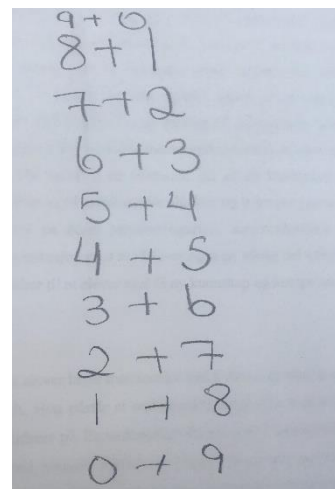 9 + 0
8 + 1
7 + 2
6 + 3
5 + 4
4 + 5
3 + 6
2 + 7
1 + 8
0 + 9